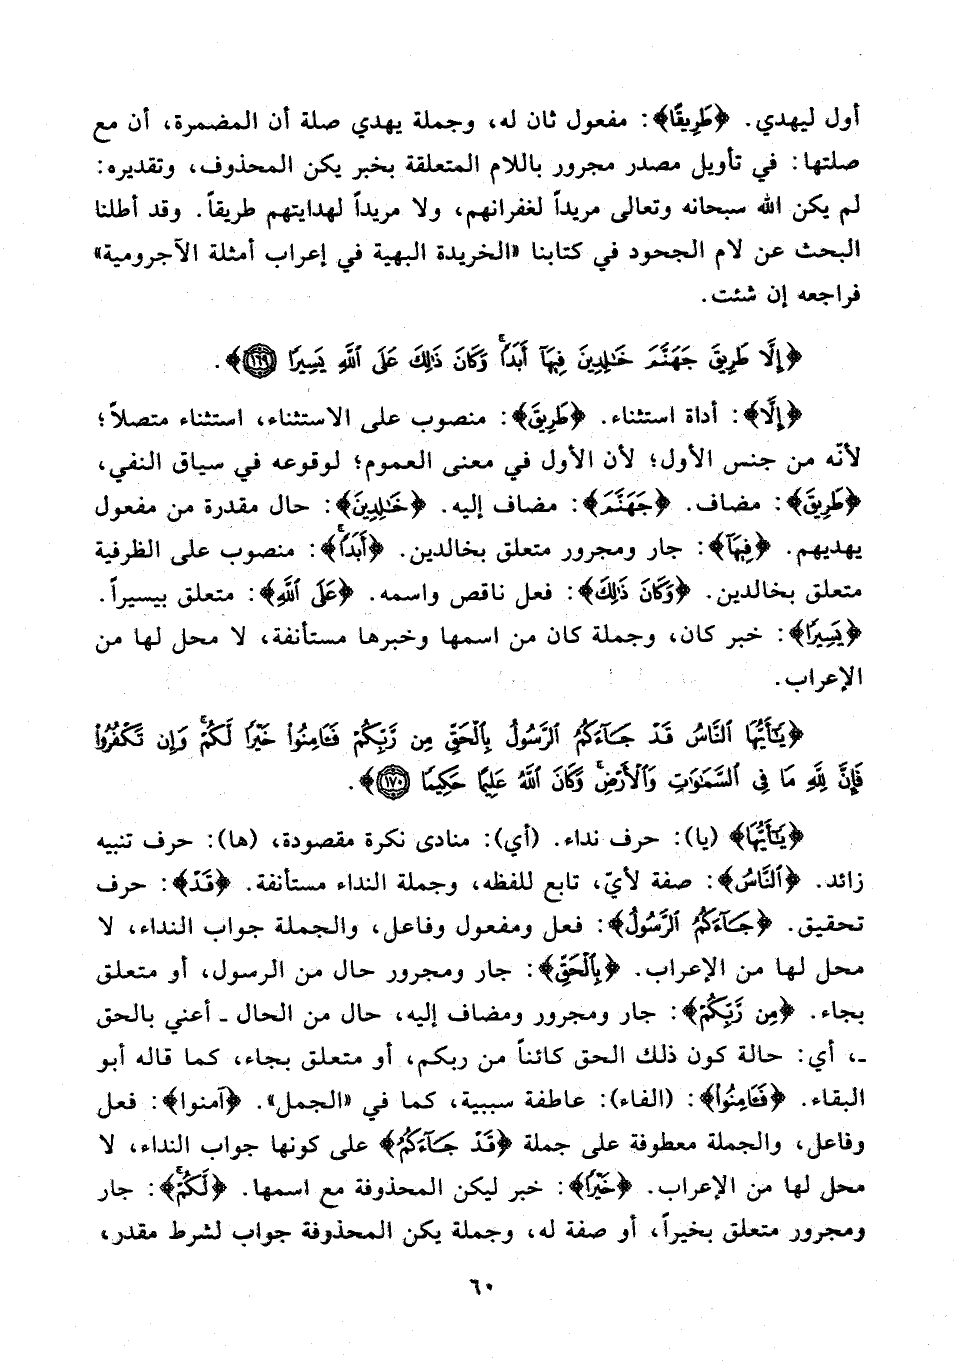 أول ليهدي. ﴿طَرِيقًا﴾: مفعول ثان له، وجملة يهدي صلة أن المضمرة، أن مع
صلتها: في تأويل مصدر مجرور باللام المتعلقة بخبر يكن المحذوف، وتقديره:
لم يكن الله سبحانه وتعالى مريداً لغفرانهم، ولا مريداً لهدايتهم طريقاً. وقد أطلنا
البحث عن لام الجحود في كتابنا «الخريدة البهية في إعراب أمثلة الآجرومية»
فراجعه إن شئت.
﴿إِلَّا طَرِيقَ جَهَنَّمَ خَٰلِدِينَ فِيهَآ أَبَدًاۚ وَكَانَ ذَٰلِكَ عَلَى ٱللَّهِ يَسِيرًا ١٦٩﴾.
﴿إِلَّا﴾: أداة استثناء. ﴿طَرِيقَ﴾: منصوب على الاستثناء، استثناء متصلاً؛
لأنّه من جنس الأول؛ لأن الأول في معنى العموم؛ لوقوعه في سياق النفي،
﴿طَرِيقَ﴾: مضاف. ﴿جَهَنَّمَ﴾: مضاف إليه. ﴿خَٰلِدِينَ﴾: حال مقدرة من مفعول
يهديهم. ﴿فِيهَآ﴾: جار ومجرور متعلق بخالدين. ﴿أَبَدًاۚ﴾: منصوب على الظرفية
متعلق بخالدين. ﴿وَكَانَ ذَٰلِكَ﴾: فعل ناقص واسمه. ﴿عَلَى ٱللَّهِ﴾: متعلق بيسيراً.
﴿يَسِيرًا﴾: خبر كان، وجملة كان من اسمها وخبرها مستأنفة، لا محل لها من
الإعراب.
﴿يَٰٓأَيُّهَا ٱلنَّاسُ قَدْ جَآءَكُمُ ٱلرَّسُولُ بِٱلْحَقِّ مِن رَّبِّكُمْ فَـَٔامِنُوا۟ خَيْرًا لَّكُمْۚ وَإِن تَكْفُرُوا۟
فَإِنَّ لِلَّهِ مَا فِى ٱلسَّمَٰوَٰتِ وَٱلْأَرْضِۚ وَكَانَ ٱللَّهُ عَلِيمًا حَكِيمًا ١٧٠﴾.
﴿يَٰٓأَيُّهَا﴾ (يا): حرف نداء. (أي): منادى نكرة مقصودة، (ها): حرف تنبيه
زائد. ﴿ٱلنَّاسُ﴾: صفة لأيّ، تابع للفظه، وجملة النداء مستأنفة. ﴿قَدْ﴾: حرف
تحقيق. ﴿جَآءَكُمُ ٱلرَّسُولُ﴾: فعل ومفعول وفاعل، والجملة جواب النداء، لا
محل لها من الإعراب. ﴿بِٱلْحَقِّ﴾: جار ومجرور حال من الرسول، أو متعلق
بجاء. ﴿مِن رَّبِّكُمْ﴾: جار ومجرور ومضاف إليه، حال من الحال ـ أعني بالحق
ـ، أي: حالة كون ذلك الحق كائناً من ربكم، أو متعلق بجاء، كما قاله أبو
البقاء. ﴿فَـَٔامِنُوا۟﴾: (الفاء): عاطفة سببية، كما في «الجمل». ﴿آمنوا﴾: فعل
وفاعل، والجملة معطوفة على جملة ﴿قَدْ جَآءَكُمُ﴾ على كونها جواب النداء، لا
محل لها من الإعراب. ﴿خَيْرًا﴾: خبر ليكن المحذوفة مع اسمها. ﴿لَّكُمْۚ﴾: جار
ومجرور متعلق بخيراً، أو صفة له، وجملة يكن المحذوفة جواب لشرط مقدر،
٦٠